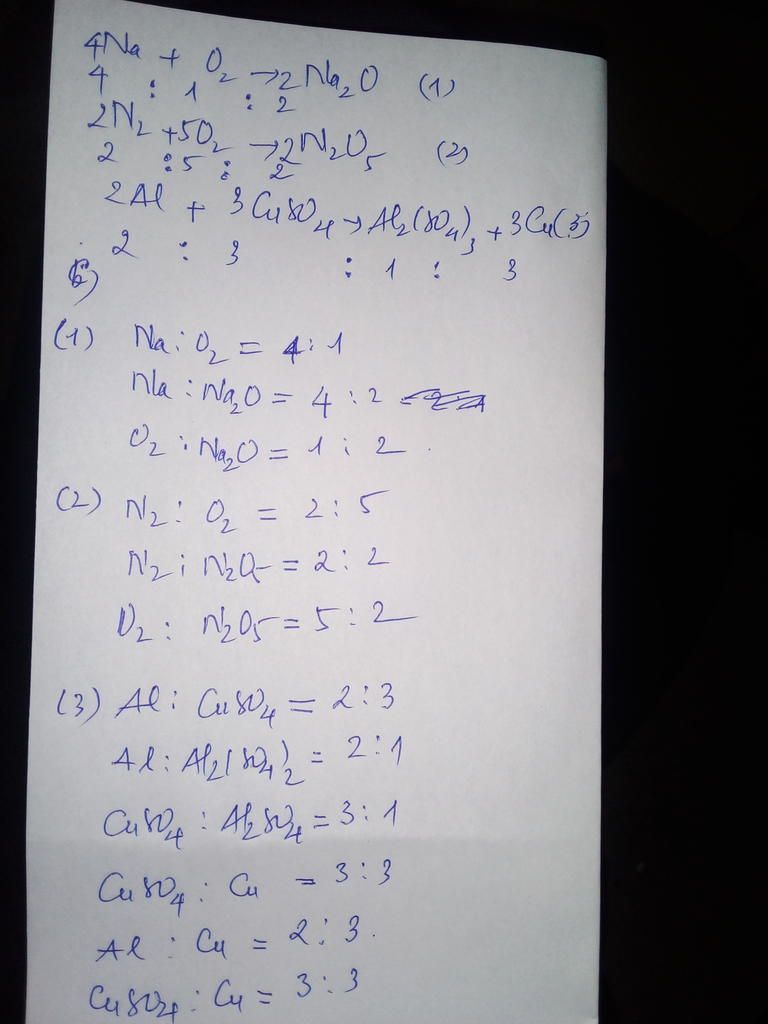 4Na + O₂ → 2Na₂O (1)
4 : 1 : 2
2N₂ + 5O₂ → 2N₂O₅ (2)
2 : 5 : 2
2Al + 3CuSO₄ → Al₂(SO₄)₃ + 3Cu (3)
2 : 3 : 1 : 3
(1) Na : O₂ = 4 : 1
Na : Na₂O = 4 : 2
O₂ : Na₂O = 1 : 2
(2) N₂ : O₂ = 2 : 5
N₂ : = 2 : 2
O₂ : N₂O₅ = 5 : 2
(3) Al : CuSO₄ = 2 : 3
Al : Al₂(SO₄)₂ = 2 : 1
CuSO₄ : Al₂SO₄ = 3 : 1
CuSO₄ : Cu = 3 : 3
Al : Cu = 2 : 3.
CuSO₄ : Cu = 3 : 3